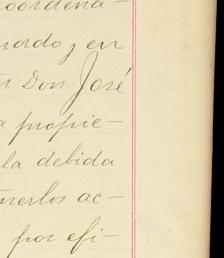 coordena-
nardo, en
Don José
a propie-
la debida
nerlos ac-
por efi-